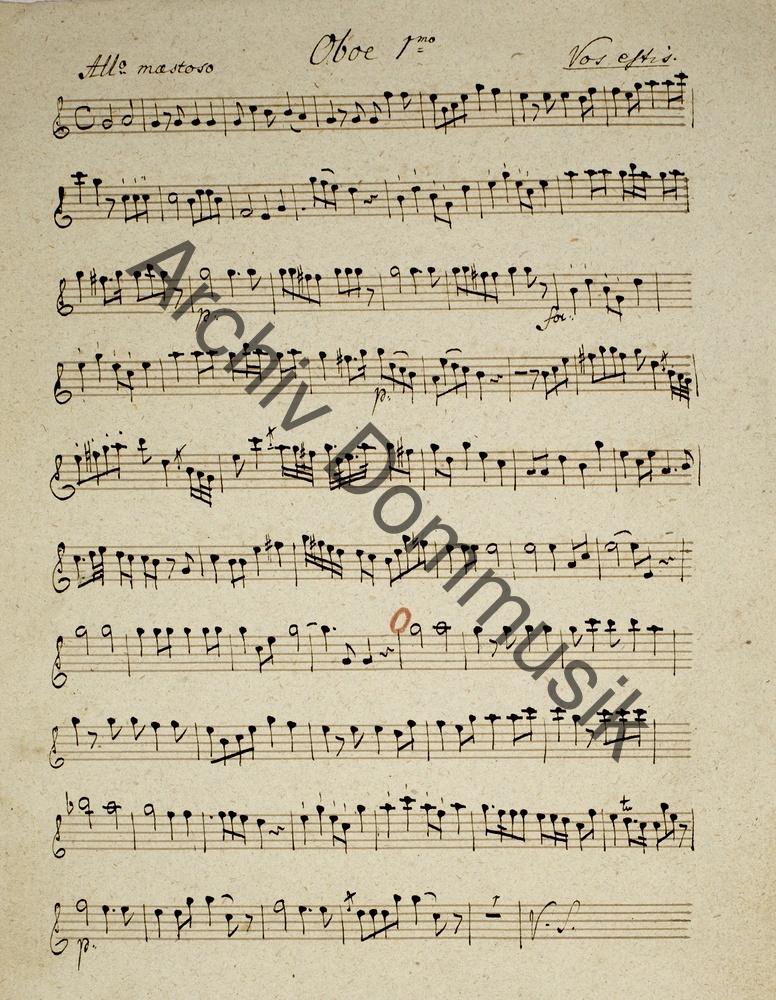 Oboe 1mo
Allo maestoso
Vos estis.
p.
for:
p.
O
tr
p.
V. S.
Archiv Dommusik